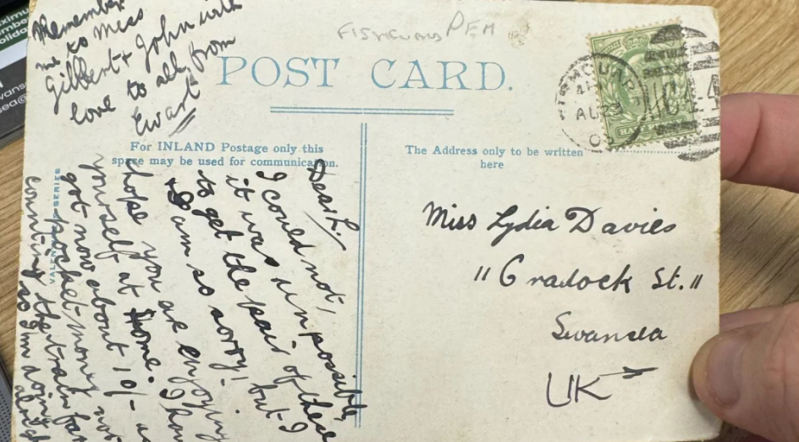 Remember
me to Miss
Gilbert & John with
love to all from
Ewart
FISHGUARD PEM
POST CARD.
For INLAND Postage only this
space may be used for communication.
The Address only to be written
here
Dear L.
I could not,
it was impossible,
to get the pair of these
& I am so sorry! but I
hope you are enjoying
yourself at Home. I have
got now about 10/- 
pocket money not
counting the train fare
so I'm doing
Miss Lydia Davies
"Cradock St."
Swansea
UK